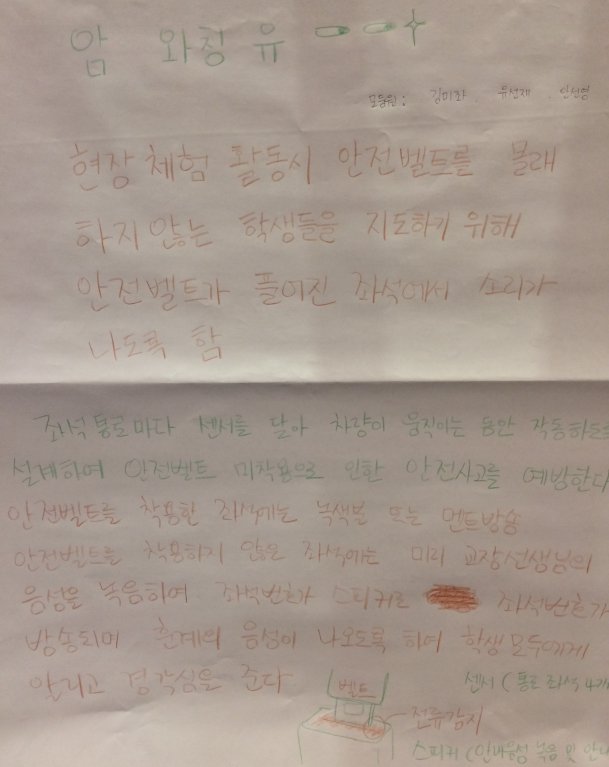 암 와칭 유
모둠원 : 김미좌 . 유선재 . 안선영
현장체험 활동시 안전벨트를 몰래
하지않는 학생들을 지도하기 위해
안전벨트가 풀어진 좌석에서 소리가
나도록 함
좌석 통로마다 센서를 달아 차량이 움직이는 동안 작동하도록
설계하여 안전벨트 미착용으로 인한 안전사고를 예방한다
안전벨트를 착용한 좌석에는 녹색불 또는 멘트방송
안전벨트를 착용하지 않은 좌석에는 미리 교장선생님의
음성을 녹음하여 좌석번호가 스피커로 좌석번호가
방송되며 훈계의 음성이 나오도록 하여 학생모두에게
알리고 경각심을 준다
센서 (통로 좌석 4개
벨트
전류감지
스피커 (안내음성 녹음 및 안내